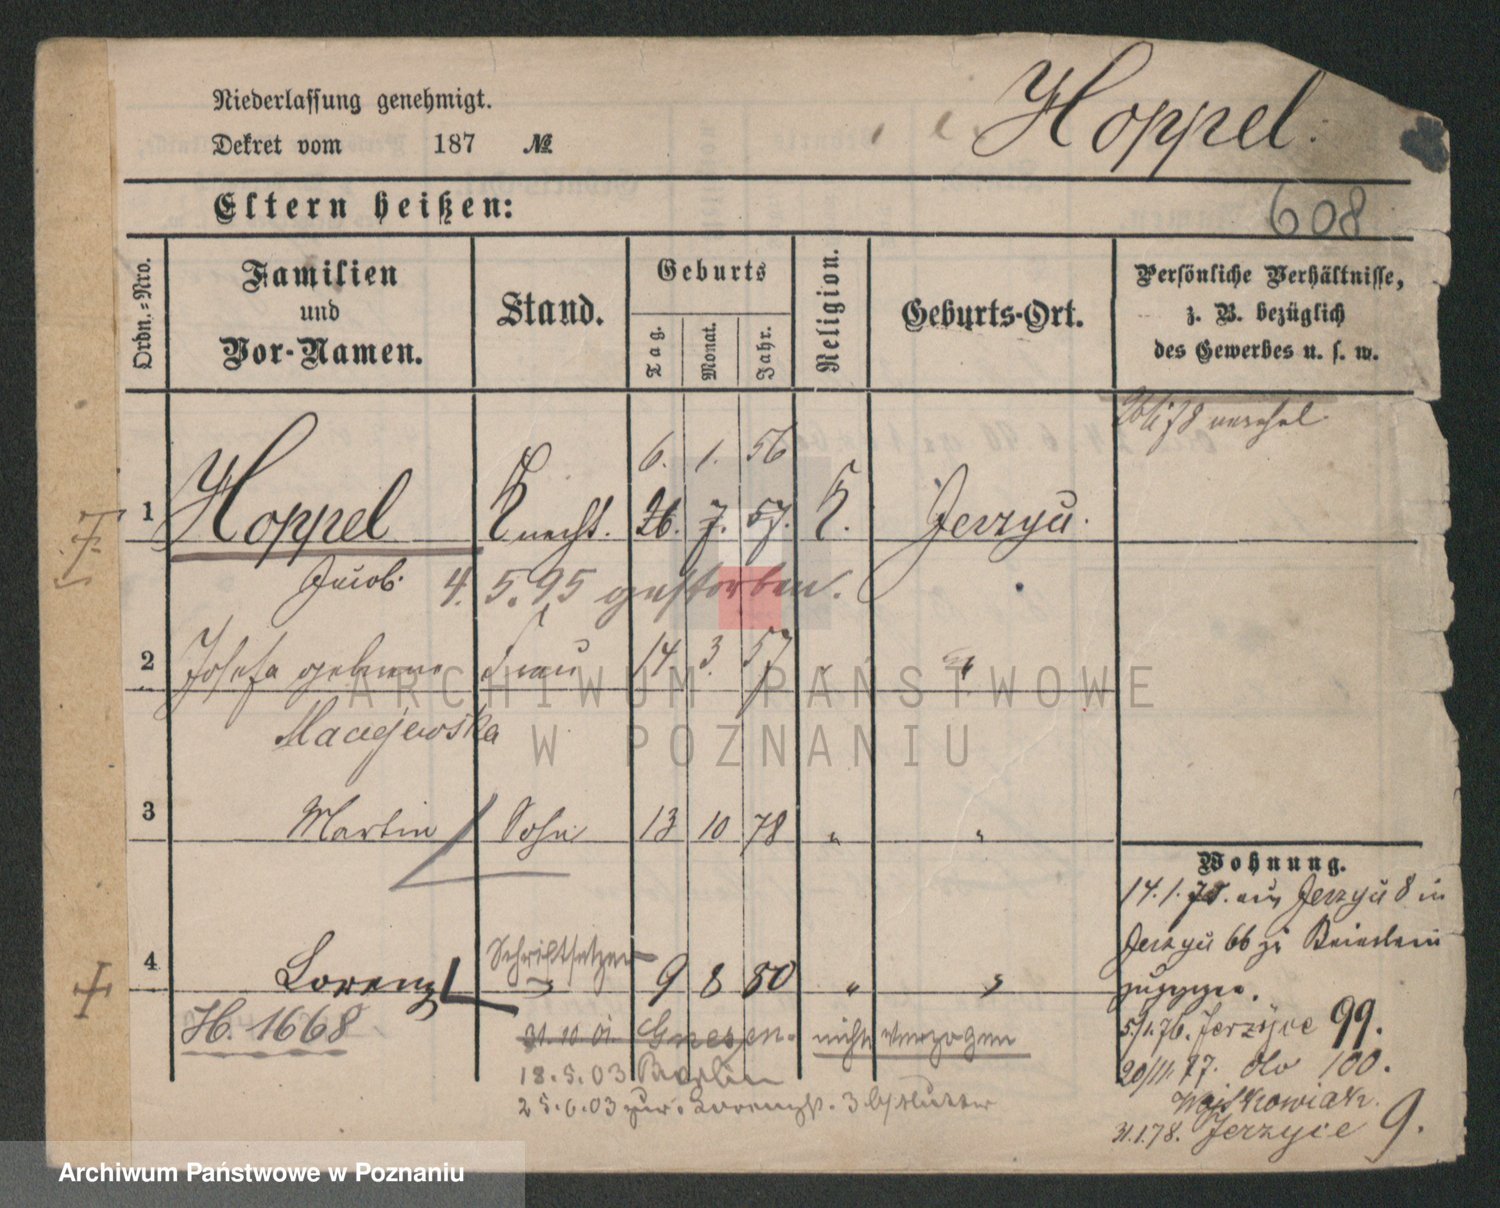 Niederlassung genehmigt.
Dekret vom 187 №
Hoppel.
Eltern heißen:
608
Ordn.-Nro.
Familien
und
Vor-Namen.
Stand.
Geburts
Tag.
Monat.
Jahr.
Religion.
Geburts-Ort.
Persönliche Verhältnisse,
z. B. bezüglich
des Gewerbes u. s. w.
6. 1. 56
1 Hoppel Knecht. 26. 7. 57. K. Jerzyce.
Jacob. 4. 5. 95 gestorben.
2 Josefa geborene Frau 14 3. 57 " "
Maciejewska
3 Martin Sohn 13 10 78 " "
Wohnung.
14. 1. 75. aus Jerzyce 8 in
Jerzyce 66 zu
Schriftsetzer
4 Lorenz " 9 8 80 " "
zugezogen.
H. 1668
31.10.01. Gnesen. nicht verzogen
5/1.76. Jerzyce 99.
18.5.03 Berlin
20/11.77. do 100.
25.6.03 zur. Lorenzstr. 3 b/Mutter
Wojtkowiak.
31.1.78. Jerzyce 9.
ARCHIWUM PAŃSTWOWE
W POZNANIU
Archiwum Państwowe w Poznaniu